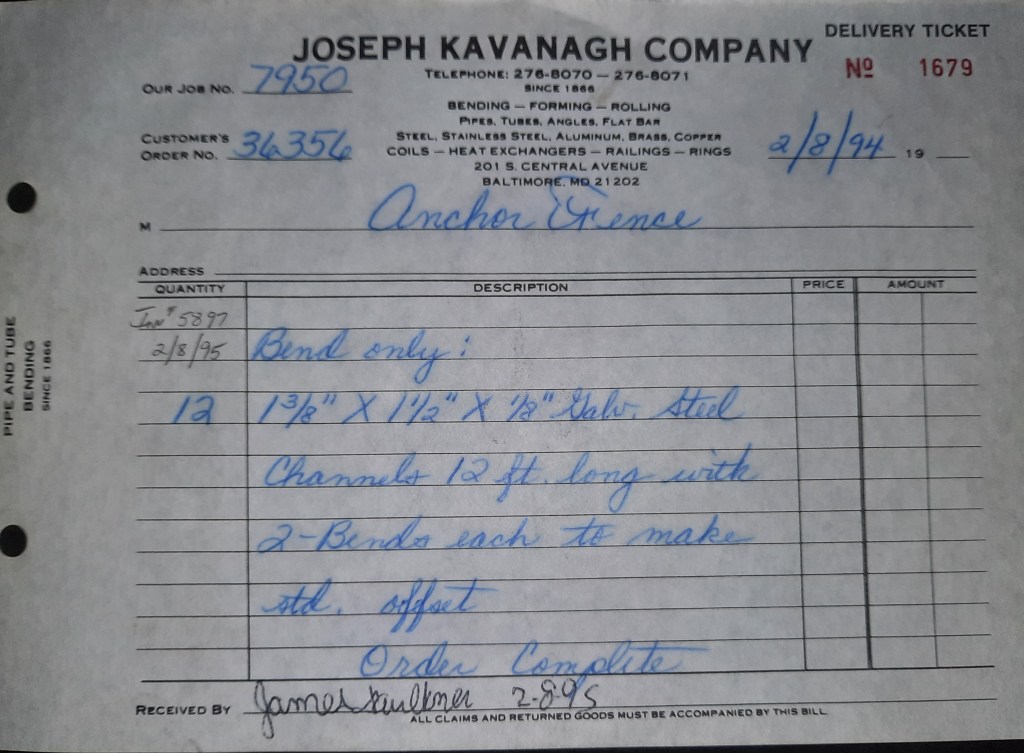 DELIVERY TICKET
JOSEPH KAVANAGH COMPANY
Nº 1679
TELEPHONE: 276-8070 — 276-8071
SINCE 1866
OUR JOB NO. 7950
BENDING — FORMING — ROLLING
PIPES, TUBES, ANGLES, FLAT BAR
STEEL, STAINLESS STEEL, ALUMINUM, BRASS, COPPER
CUSTOMER'S
ORDER NO. 36356
COILS — HEAT EXCHANGERS — RAILINGS — RINGS
2/8/94 19
201 S. CENTRAL AVENUE
BALTIMORE, MD 21202
M Anchor Fence
ADDRESS
QUANTITY DESCRIPTION PRICE AMOUNT
Inv# 5897
2/8/95 Bend only:
12 1 3/8" X 1 1/2" X 1/8" Galv. Steel
Channels 12 ft. long with
2-Bends each to make
std. offset
Order Complete
RECEIVED BY James Faulkner 2-8-95
ALL CLAIMS AND RETURNED GOODS MUST BE ACCOMPANIED BY THIS BILL
PIPE AND TUBE
BENDING
SINCE 1866